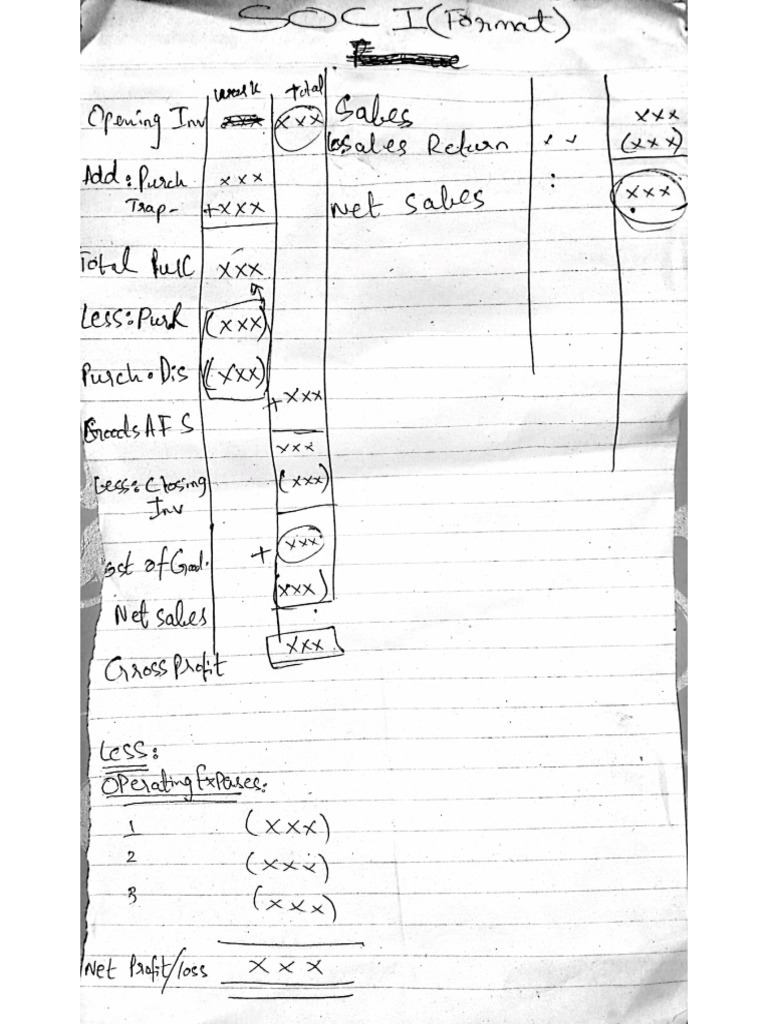 SOC I (Format)
work total
Opening Inv xxx (xxx) Sales xxx
Sales Return (xxx)
Add: Purch xxx
Trap- +xxx Net Sales xxx
Total Purc xxx
Less: Purch (xxx)
Purch. Dis (xxx)
+xxx
Goods A F S
xxx
Less: Closing (xxx)
Inv
xxx
ost of Good. +
(xxx)
Net sales
xxx
Gross Profit
Less:
Operating Expases:
1 (xxx)
2 (xxx)
3 (xxx)
Net Profit/loss xxx